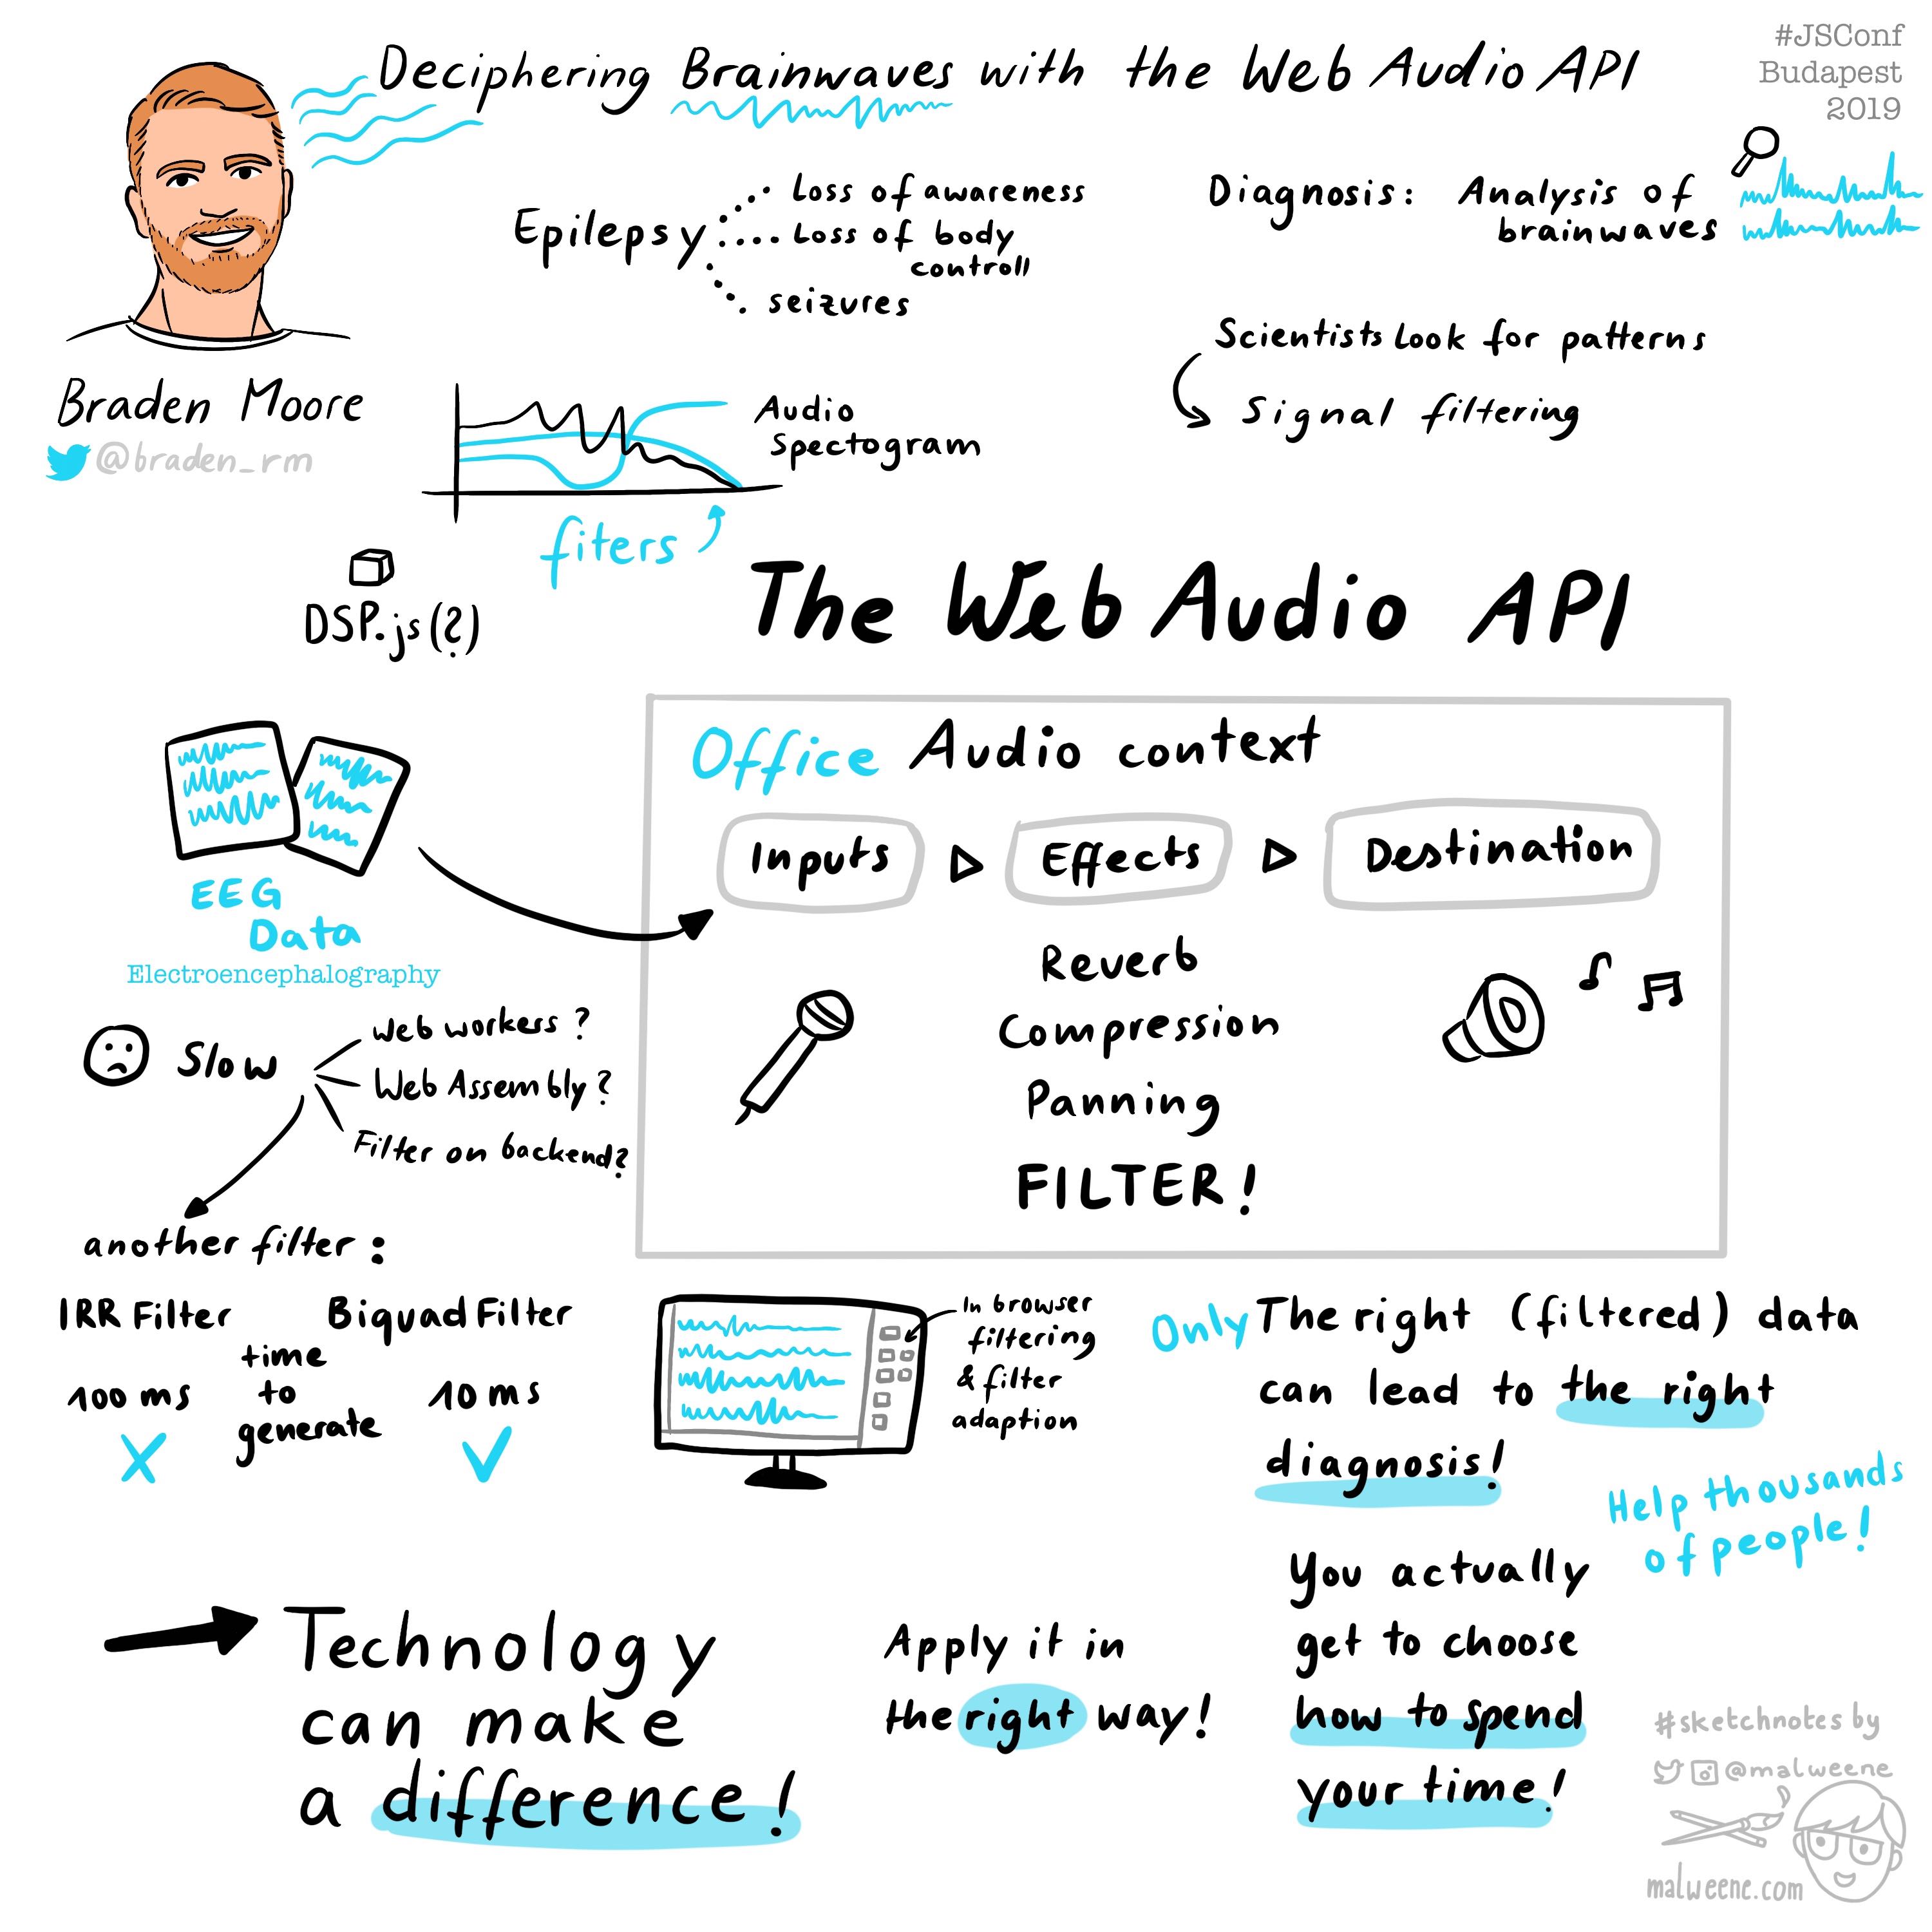 Deciphering Brainwaves with the Web Audio API
#JSConf
Budapest
2019
Epilepsy
Loss of awareness
Loss of body
controll
seizures
Diagnosis: Analysis of
brainwaves
Scientists look for patterns
Signal filtering
Braden Moore
@braden_rm
Audio
Spectogram
fiters
DSP.js(?)
The Web Audio API
EEG
Data
Electroencephalography
Office Audio context
Inputs
Effects
Destination
Reverb
Compression
Panning
FILTER!
Slow
Web workers?
Web Assembly?
Filter on backend?
another filter:
IRR Filter
Biquad Filter
time
to
generate
100 ms
10 ms
In browser
filtering
& filter
adaption
Only The right (filtered) data
can lead to the right
diagnosis!
Help thousands
of people!
You actually
get to choose
how to spend
your time!
Technology
can make
a difference!
Apply it in
the right way!
#sketchnotes by
@malweene
malweene.com